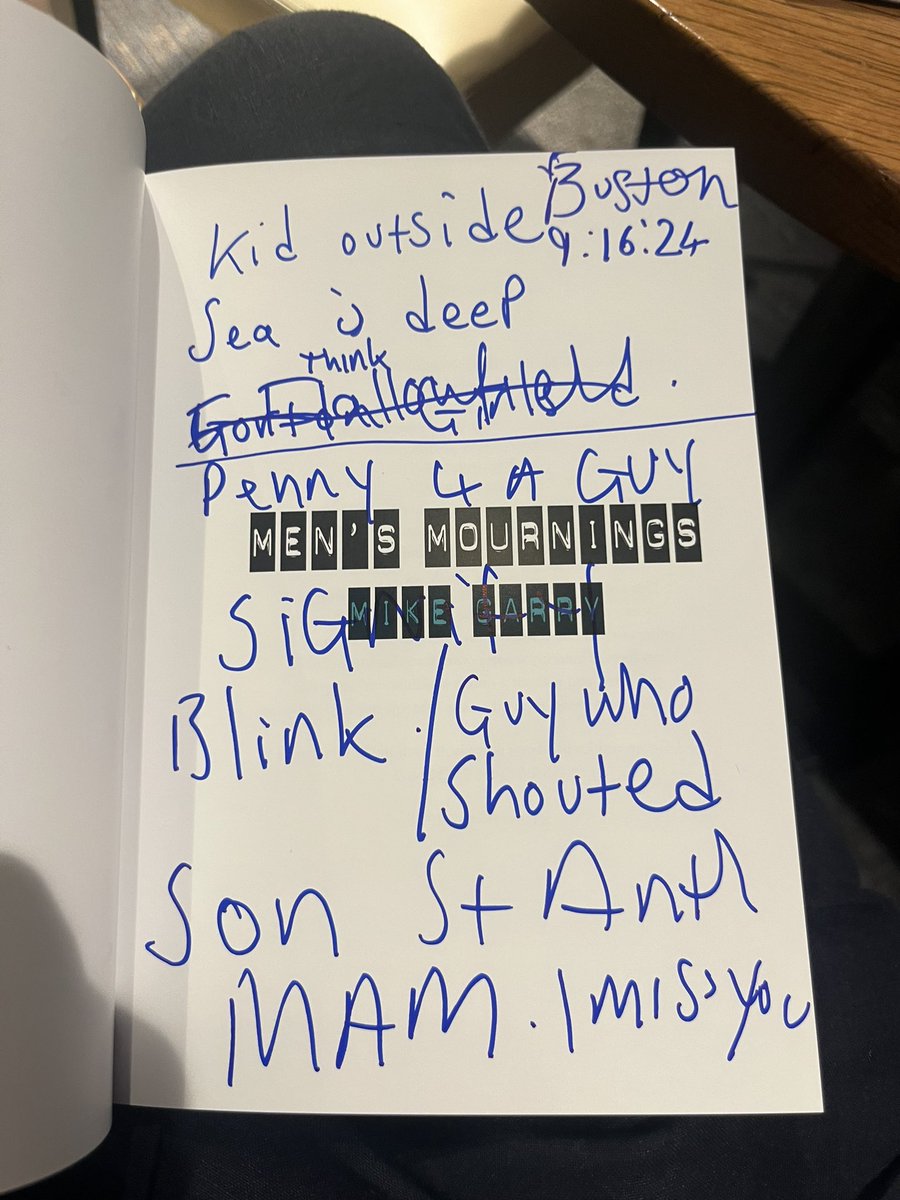 Kid outside
Boston
9:16:24
Sea is deep
Think
Penny 4 A GUY
MEN'S MOURNINGS
MIKE GARRY
SiGnify
Blink. / Guy who
/ Shouted
Son St Anth
MAM. I miss you